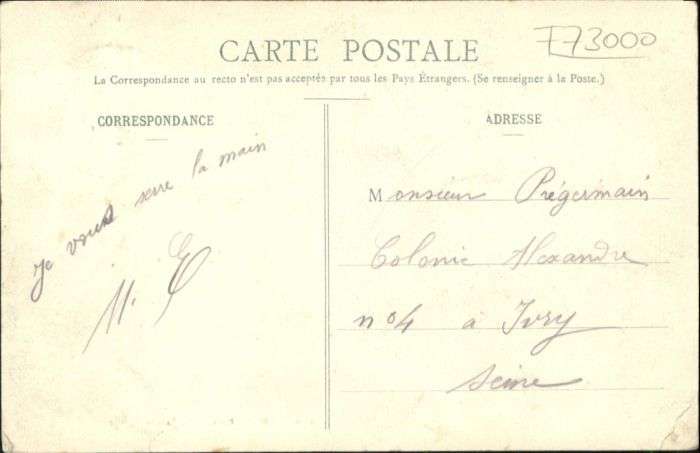 F73000
CARTE POSTALE
La Correspondance au recto n'est pas acceptée par tous les Pays Étrangers. (Se renseigner à la Poste.)
CORRESPONDANCE
ADRESSE
Je vous serre la main
M. E
Monsieur Prégermain
Colonie Alexandre
n° 4 a Ivry
Seine